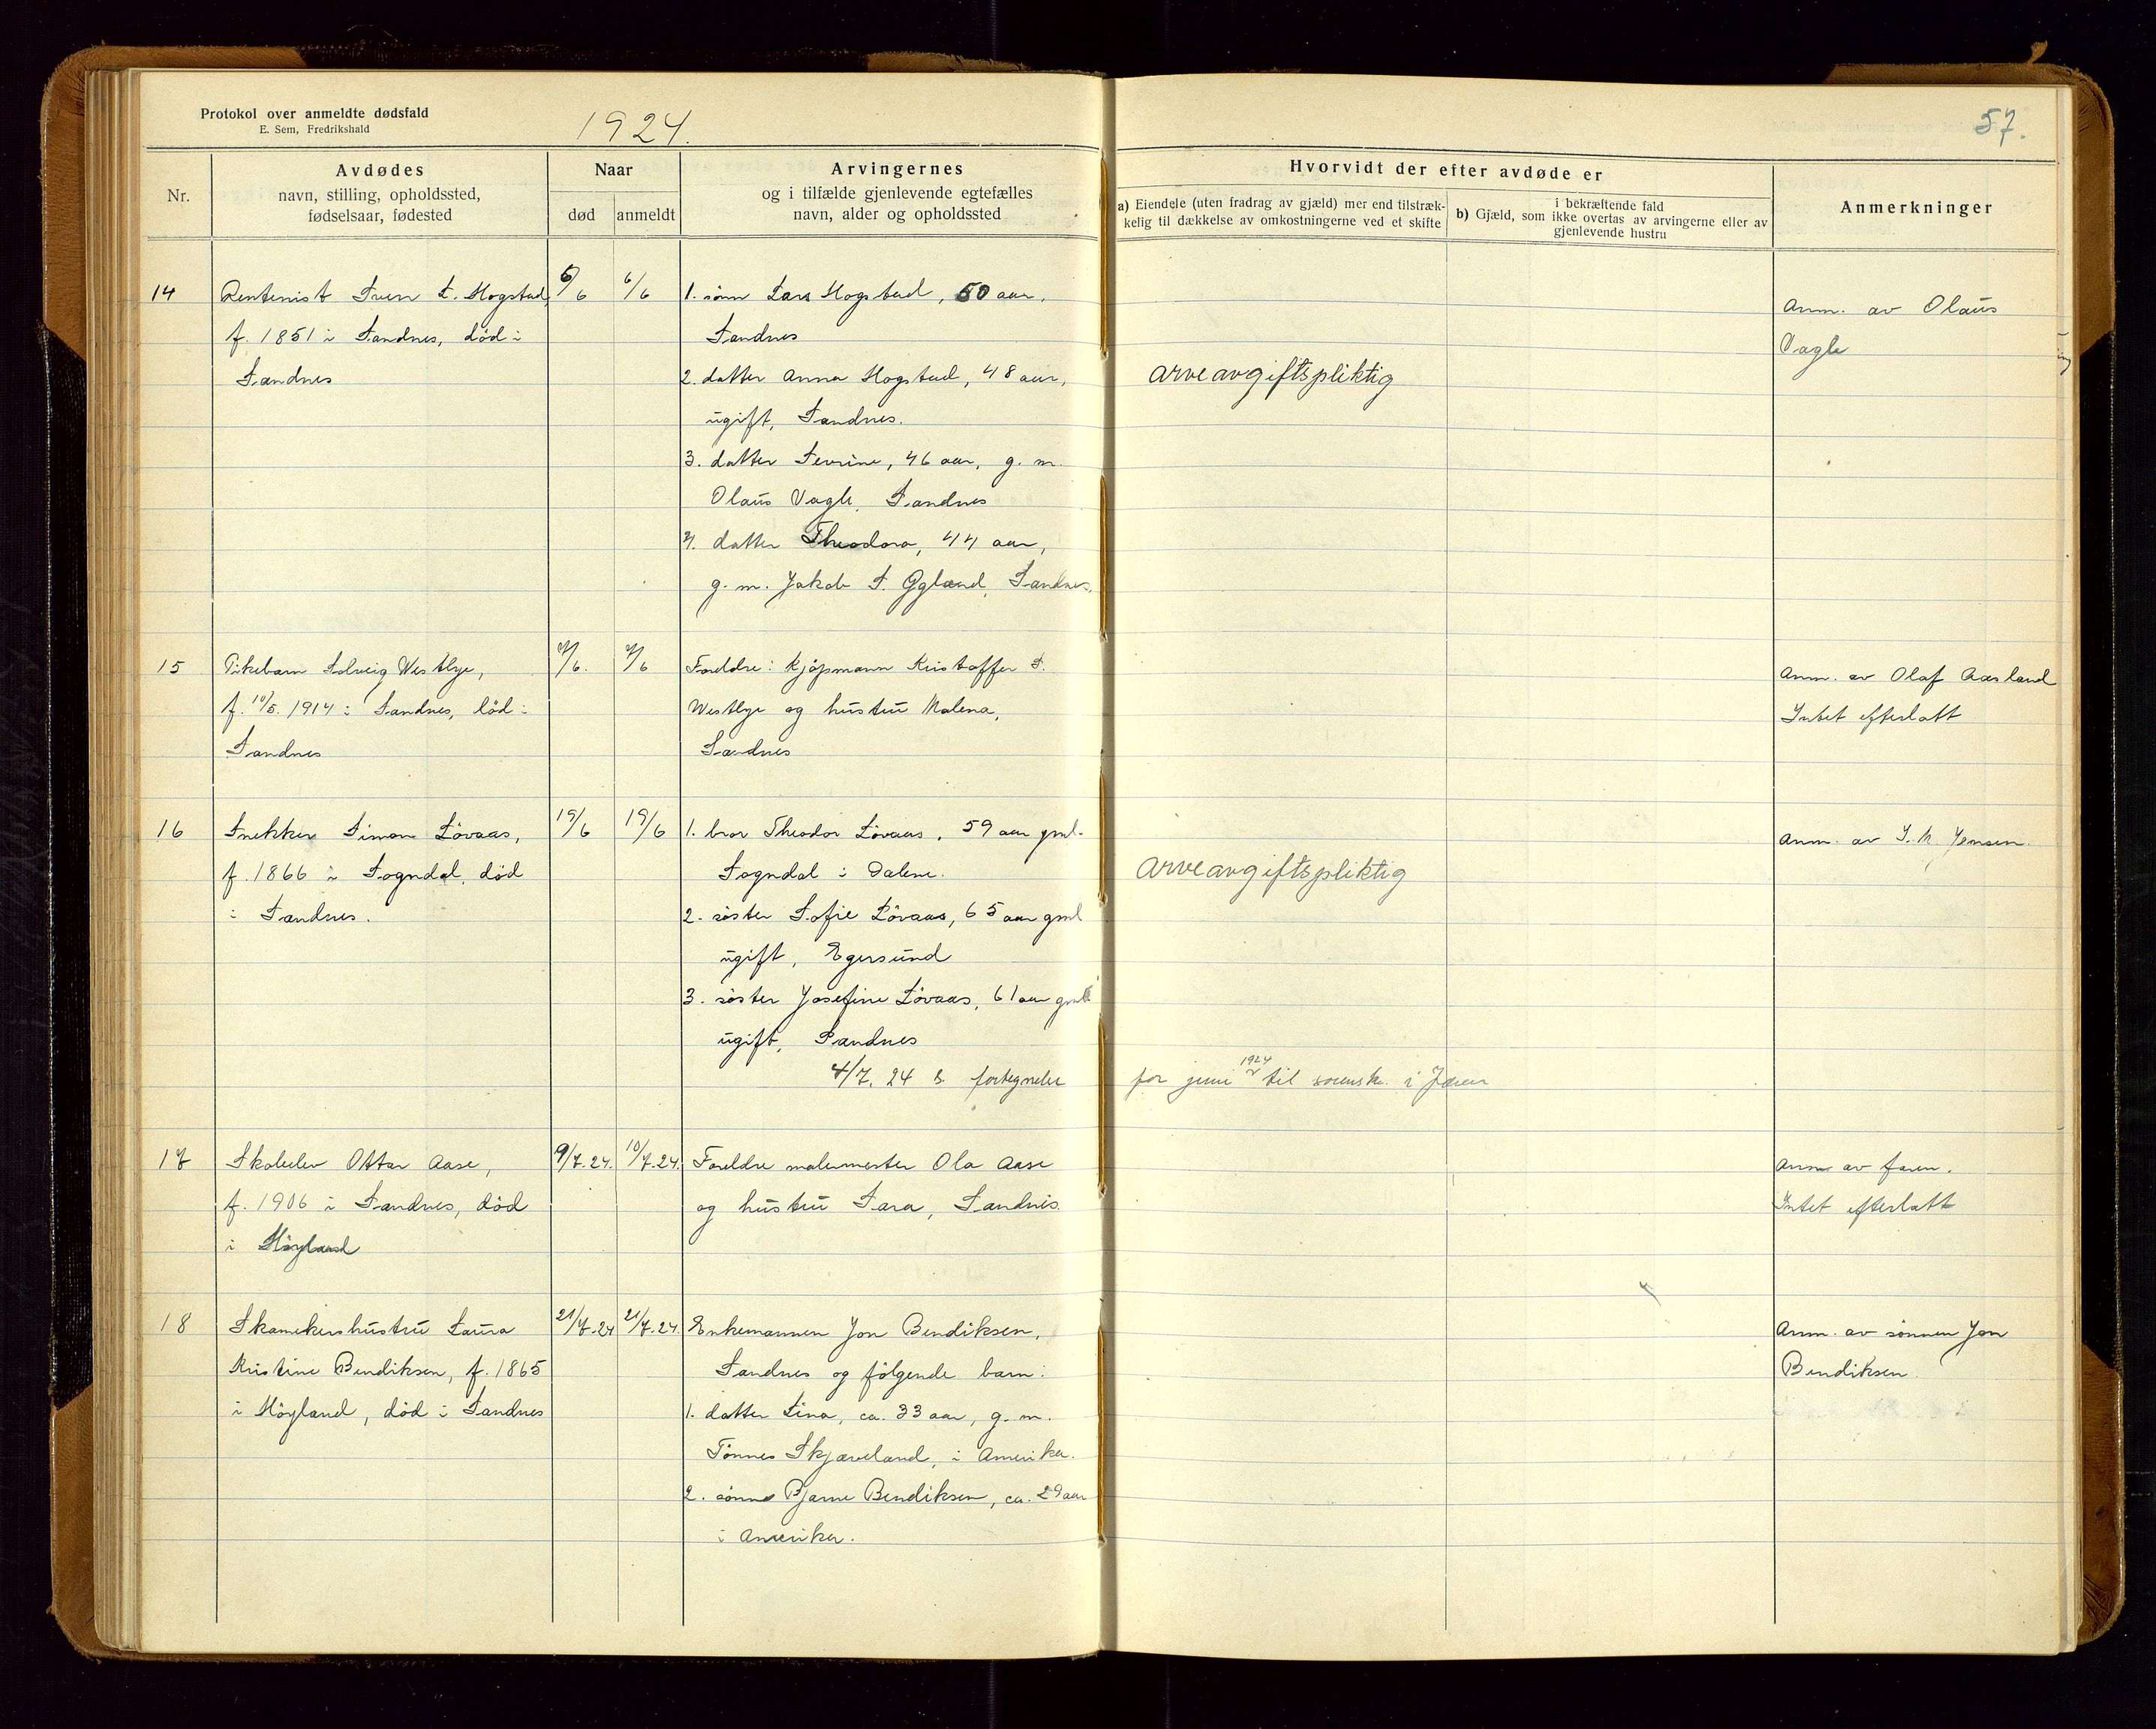 Protokol over anmeldte dødsfald
E. Sem, Fredrikshald
1924.
57.
Nr.
Avdødes
navn, stilling, opholdssted,
fødselsaar, fødested
Naar
død
anmeldt
Arvingernes
og i tilfælde gjenlevende egtefælles
navn, alder og opholdssted
Hvorvidt der efter avdøde er
a) Eiendele (uten fradrag av gjæld) mer end tilstræk-
kelig til dækkelse av omkostningerne ved et skifte
i bekræftende fald
b) Gjæld, som ikke overtas av arvingerne eller av
gjenlevende hustru
Anmerkninger
14
Rentenist Sven L. Hogstad,
f. 1851 i Sandnes, død i
Sandnes
6/6
1. sønn Lars Hogstad, 50 aar,
Sandnes
2. datter Anna Hogstad, 48 aar,
ugift, Sandnes.
3. datter Sevrine, 46 aar, g. m.
Olaus Vagle, Sandnes
4. datter Theodora, 44 aar,
g. m. Jakob S. Sandnes.
arveavgiftspliktig
Anm. av Olaus
Vagle
15
Pikebarn Solveig Westlye,
f. 10/5. 1914 i Sandnes, død i
Sandnes
7/6.
7/6
Foreldre: Kjøpmann Kristoffer S.
Westlye og hustru Malena,
Sandnes
Anm. av Olaf Aasland
Intet efterlatt
16
Snekker Simon Løvaas,
f. 1866 i Sogndal, død
i Sandnes.
19/6
19/6
1. bror Theodor Løvaas, 59 aar gml.
Sogndal i Dalene.
2. søster Sofie Løvaas, 65 aar gml
ugift, Egersund
3. søster Josefine Løvaas, 61 aar gml
ugift, Sandnes
arveavgiftspliktig
Anm. av J. M. Jensen.
4/7. 24 s. fortegnelse for juni 1924 til sorensk. i Jæren
17
Skoleelev Ottar Aase,
f. 1906 i Sandnes, død
i Høyland
9/7.24.
10/7.24.
Foreldre malermester Ola Aase
og hustru Sara, Sandnes.
Anm av faren.
Intet efterlatt
18
Skomakershustru Laura
Kristine Bendiksen, f. 1865
i Høyland, død i Sandnes
21/7.24
21/7.24.
Enkemannen Jon Bendiksen,
Sandnes og følgende barn:
1. datter Lina, ca. 33 aar, g. m.
Tønnes Skjæveland, i Amerika.
2. sønn Bjarne Bendiksen, ca. 29 aar
i Amerika.
Anm. av sønnen Jon
Bendiksen.